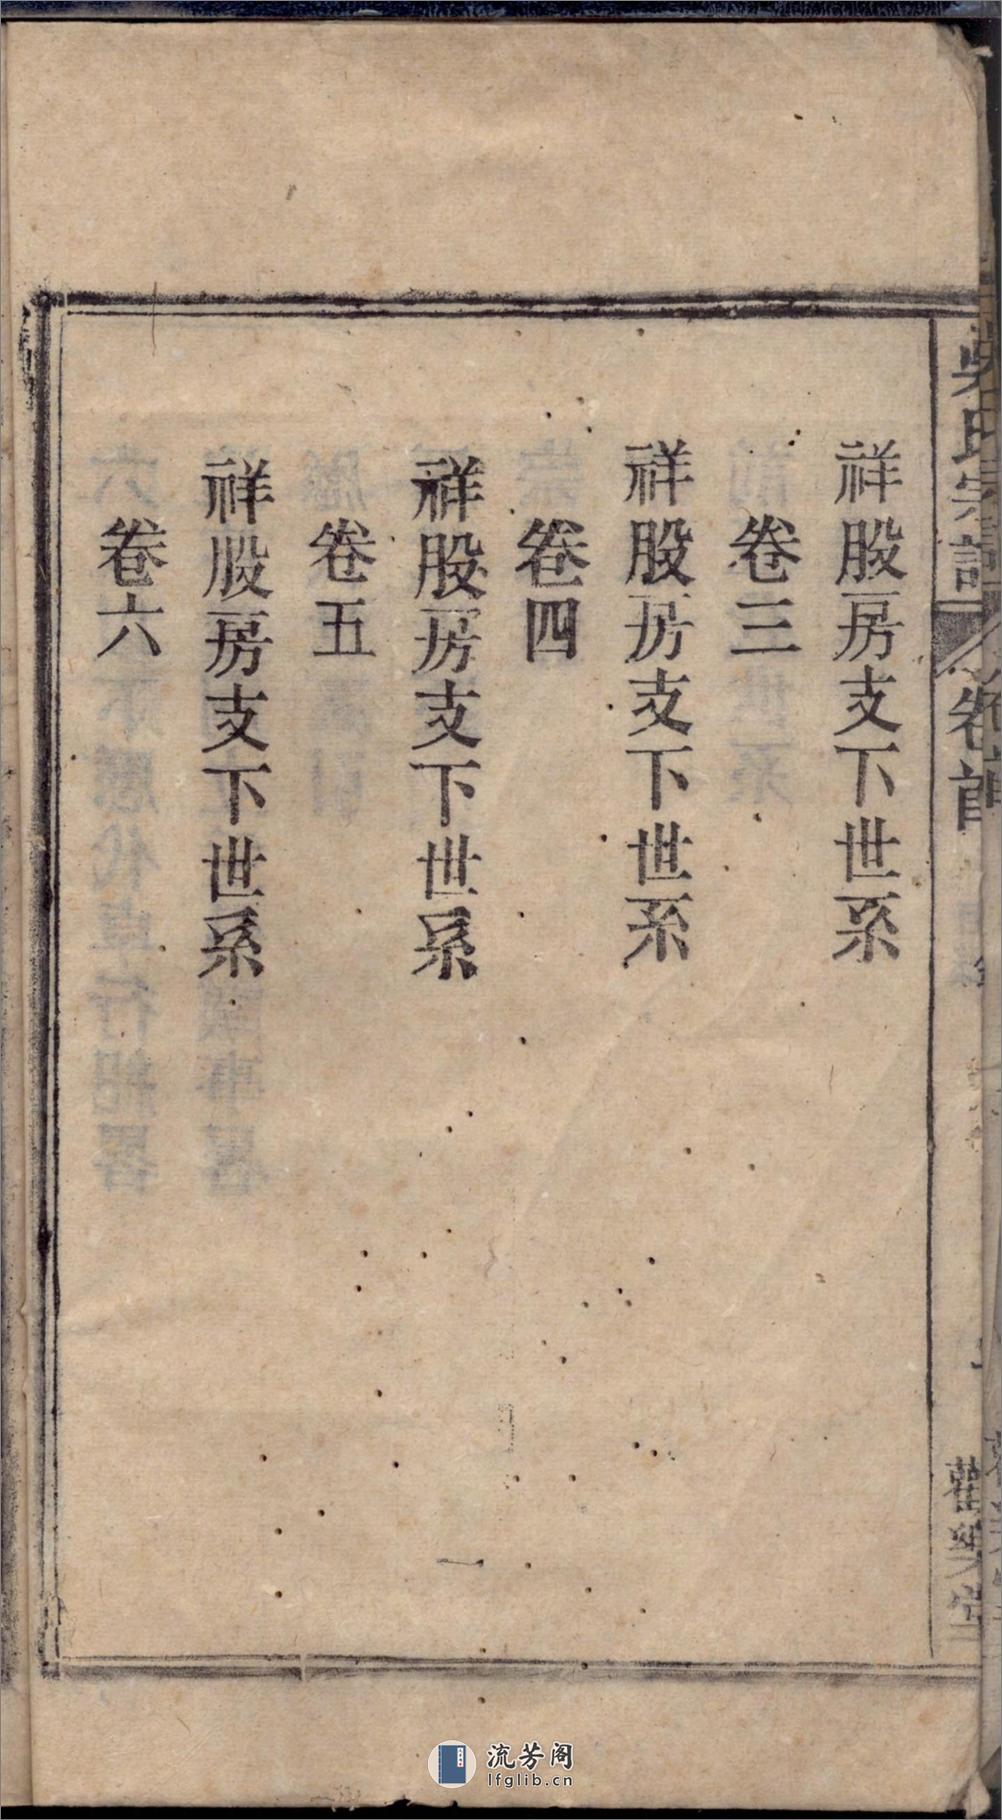 吳氏宗譜 卷首
祥股房支下世系
卷三
祥股房支下世系
卷四
祥股房支下世系
卷五
祥股房支下世系
卷六
流芳阁
lfglib.cn